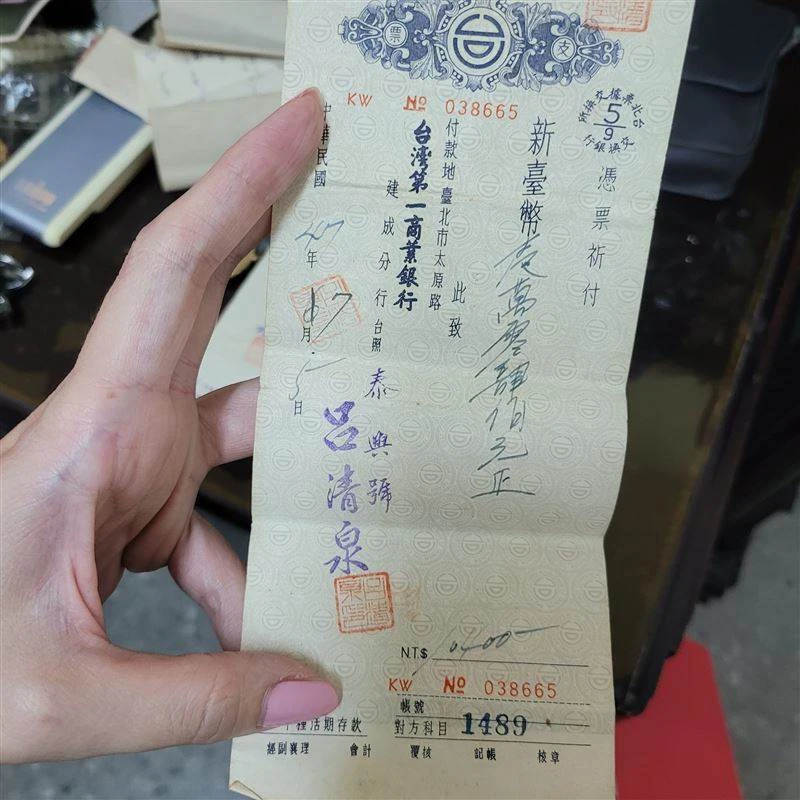 支票
KW № 038665
台北票據交換
5/9
交換銀行
憑票祈付
新臺幣壹萬零肆佰元正
此致
付款地臺北市太原路
台灣第一商業銀行
建成分行台照
泰興號
呂清泉
中華民國47年 月5日
呂清泉印
NT$ 10400-
KW № 038665
帳號
種活期存款
對方科目 1489
經副襄理 會計 覆核 記帳 核章